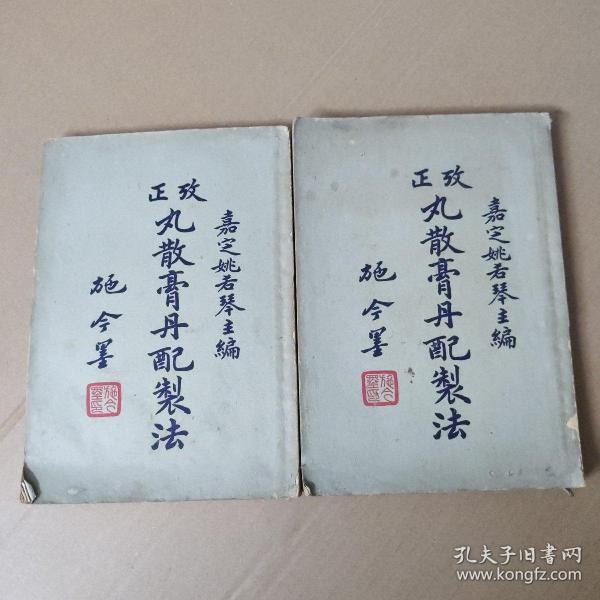 嘉定姚若琴主編
攷正
丸散膏丹配製法
施今墨
施今墨印
嘉定姚若琴主編
攷正
丸散膏丹配製法
施今墨
施今墨印
孔夫子旧书网
www.kongfz.com